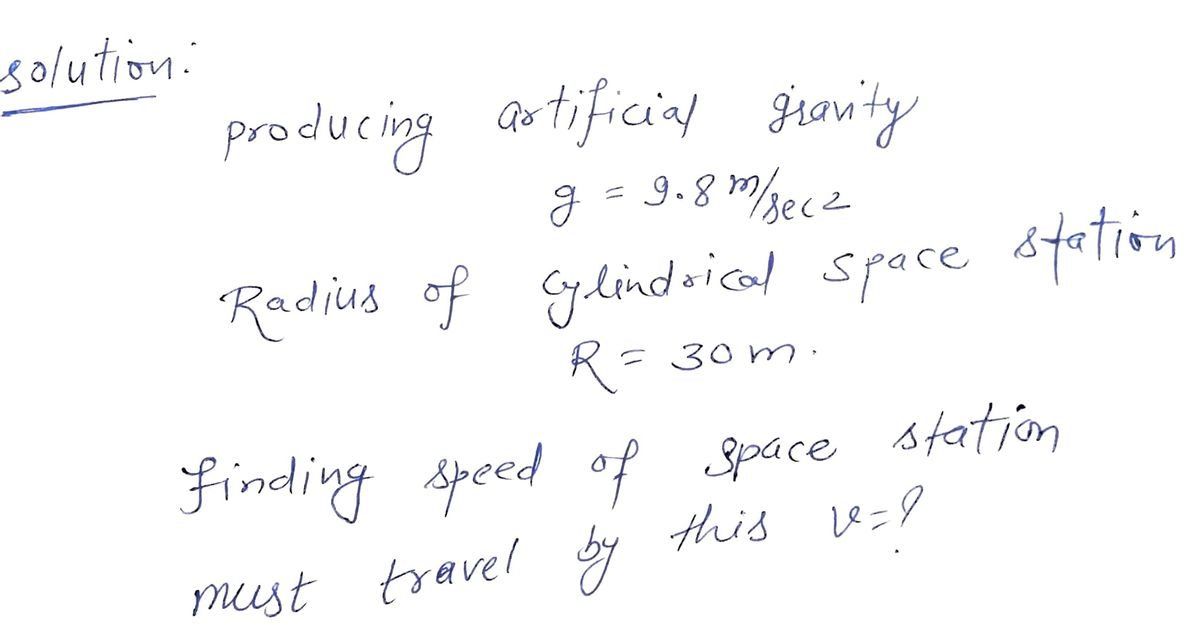 solution:
producing artificial gravity
g = 9.8 m/sec2
Radius of cylindrical space station
R = 30 m.
finding speed of space station
must travel by this v=?